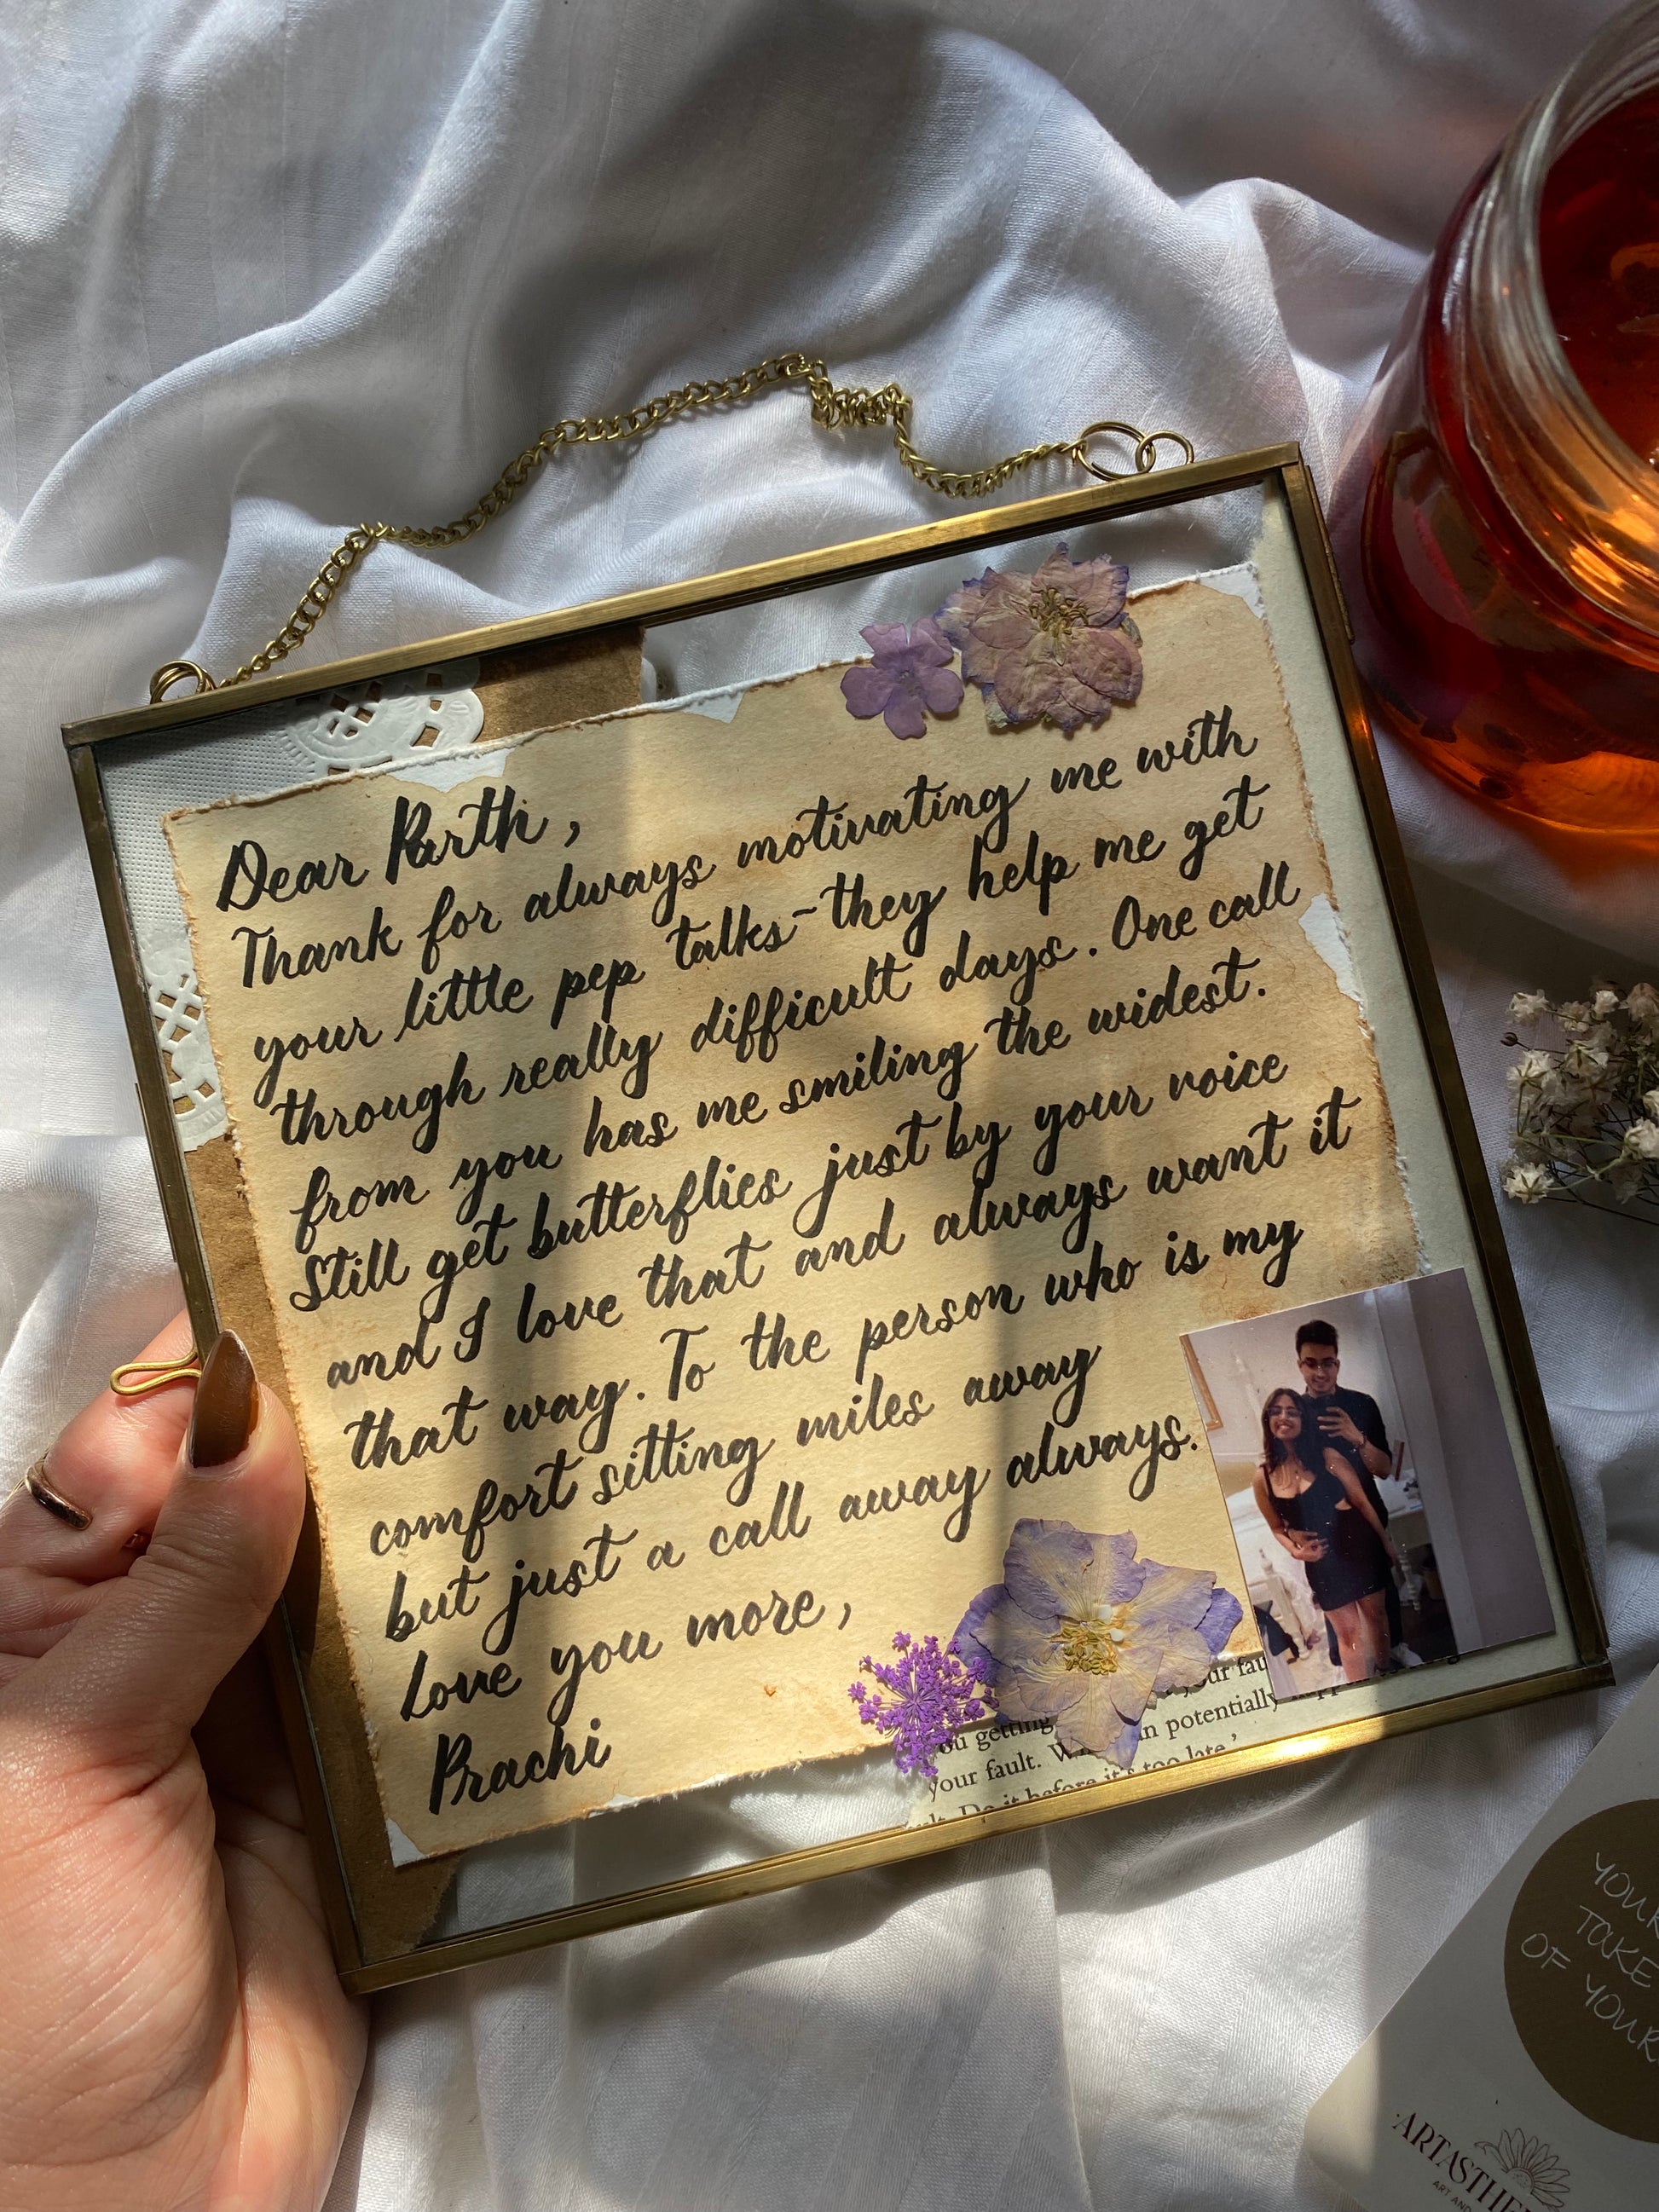 Dear Parth,
Thank for always motivating me with
your little pep talks~they help me get
through really difficult days. One call
from you has me smiling the widest.
Still get butterflies just by your voice
and I love that and always want it
that way. To the person who is my
comfort sitting miles away
but just a call away always.
Love you more,
Prachi
your fault.
potentially
too late.'
TAKE
OF YOUR
ART